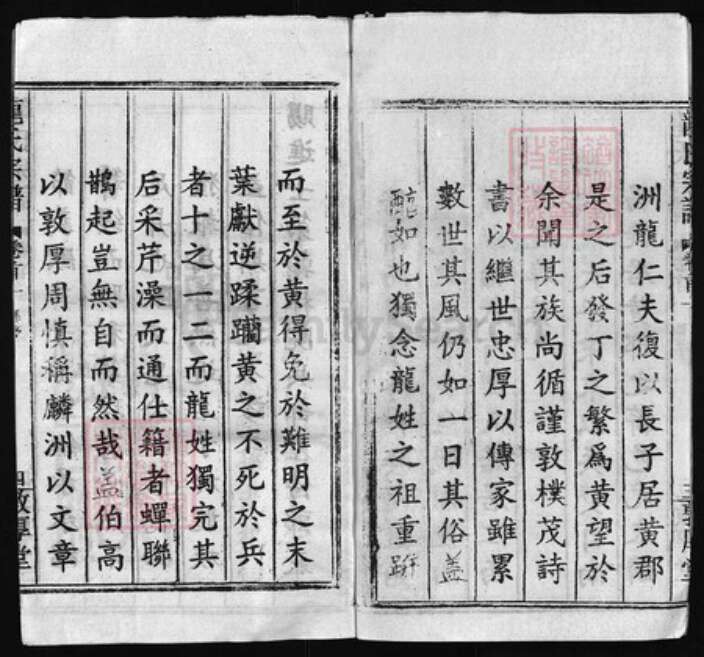 洲龍仁夫復以長子居黃郡
是之后發丁之繁爲黃望於
余聞其族尚循謹敦樸茂詩
書以繼世忠厚以傳家雖累
數世其風仍如一日其俗蓋
醕如也獨念龍姓之祖重跰
而至於黃得免於難明之末
葉獻逆蹂躪黃之不死於兵
者十之一二而龍姓獨完其
后采芹澡而通仕籍者蟬聯
鵲起豈無自而然哉蓋伯高
以敦厚周慎稱麟洲以文章
龍氏宗譜
卷首一
四
敦厚堂